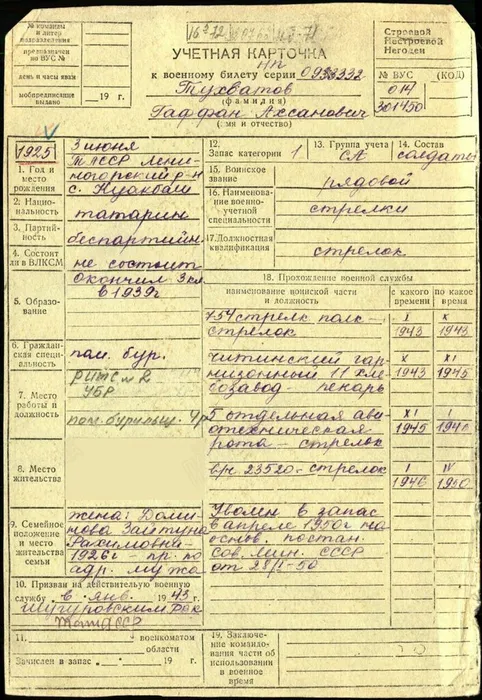 № команды
и литер
подразделения
предназначен
по ВУС №
день и часы явки
мобпредписание
выдано —19 г.
Строевой
Нестроевой
Негоден
УЧЕТНАЯ КАРТОЧКА
НП
к военному билету серии
Тухватов
(фамилия)
Гаффан Ахсанович
(имя и отчество)
№ ВУС (КОД)
014
301450
1925
1. Год и
место
рождения
3 июня
ТАССР Лени-
ногорский р-н
с. Куакбаш
2. Нацио-
нальность
татарин
3. Партий-
ность
беспартийн.
4. Состоит
ли в ВЛКСМ
не состоит
5. Образо-
вание
окончил 3 кл
в 1939г
6. Гражданская
специ-
альность
пом. бур.
7. Место
работы и
должность
УБР
пом. бурильщ.
8. Место
жительства
9. Семейное
положение
и место
жительства
семьи
жена:
Зайтуна
Рахимовна
1926г - пр. по
адр. мужа
10. Призван на действительную военную
службу в янв 1943 г.
Шугуровским РВК
ТАССР
11. военкоматом
области
Зачислен в запас „ “ 19 г.
12.
Запас категории 1
13. Группа учета
СА
14. Состав
солдаты
15. Воинское
звание
рядовой
16. Наименование
военно-
учетной
специальности
стрелки
17. Должностная
квалификация
стрелок
18. Прохождение военной службы
наименование воинской части
и должность
с какого
времени
по какое
время
754 стрелк полк —
стрелок
X 1943
X 1943
читинский гар-
низонный 11 хле-
бозавод - пекарь
X 1943
XI 1945
5 отдельная ави
отехническая
рота - стрелок
XI 1945
I
в/ч 23520 - стрелок
I 1946
IV 1950
Уволен в запас
в апреле 1950г на
основ. постан.
Сов. Мин. СССР
от 28/I-50
19. Заключение
командова-
ния части об
использовании
в военное
время